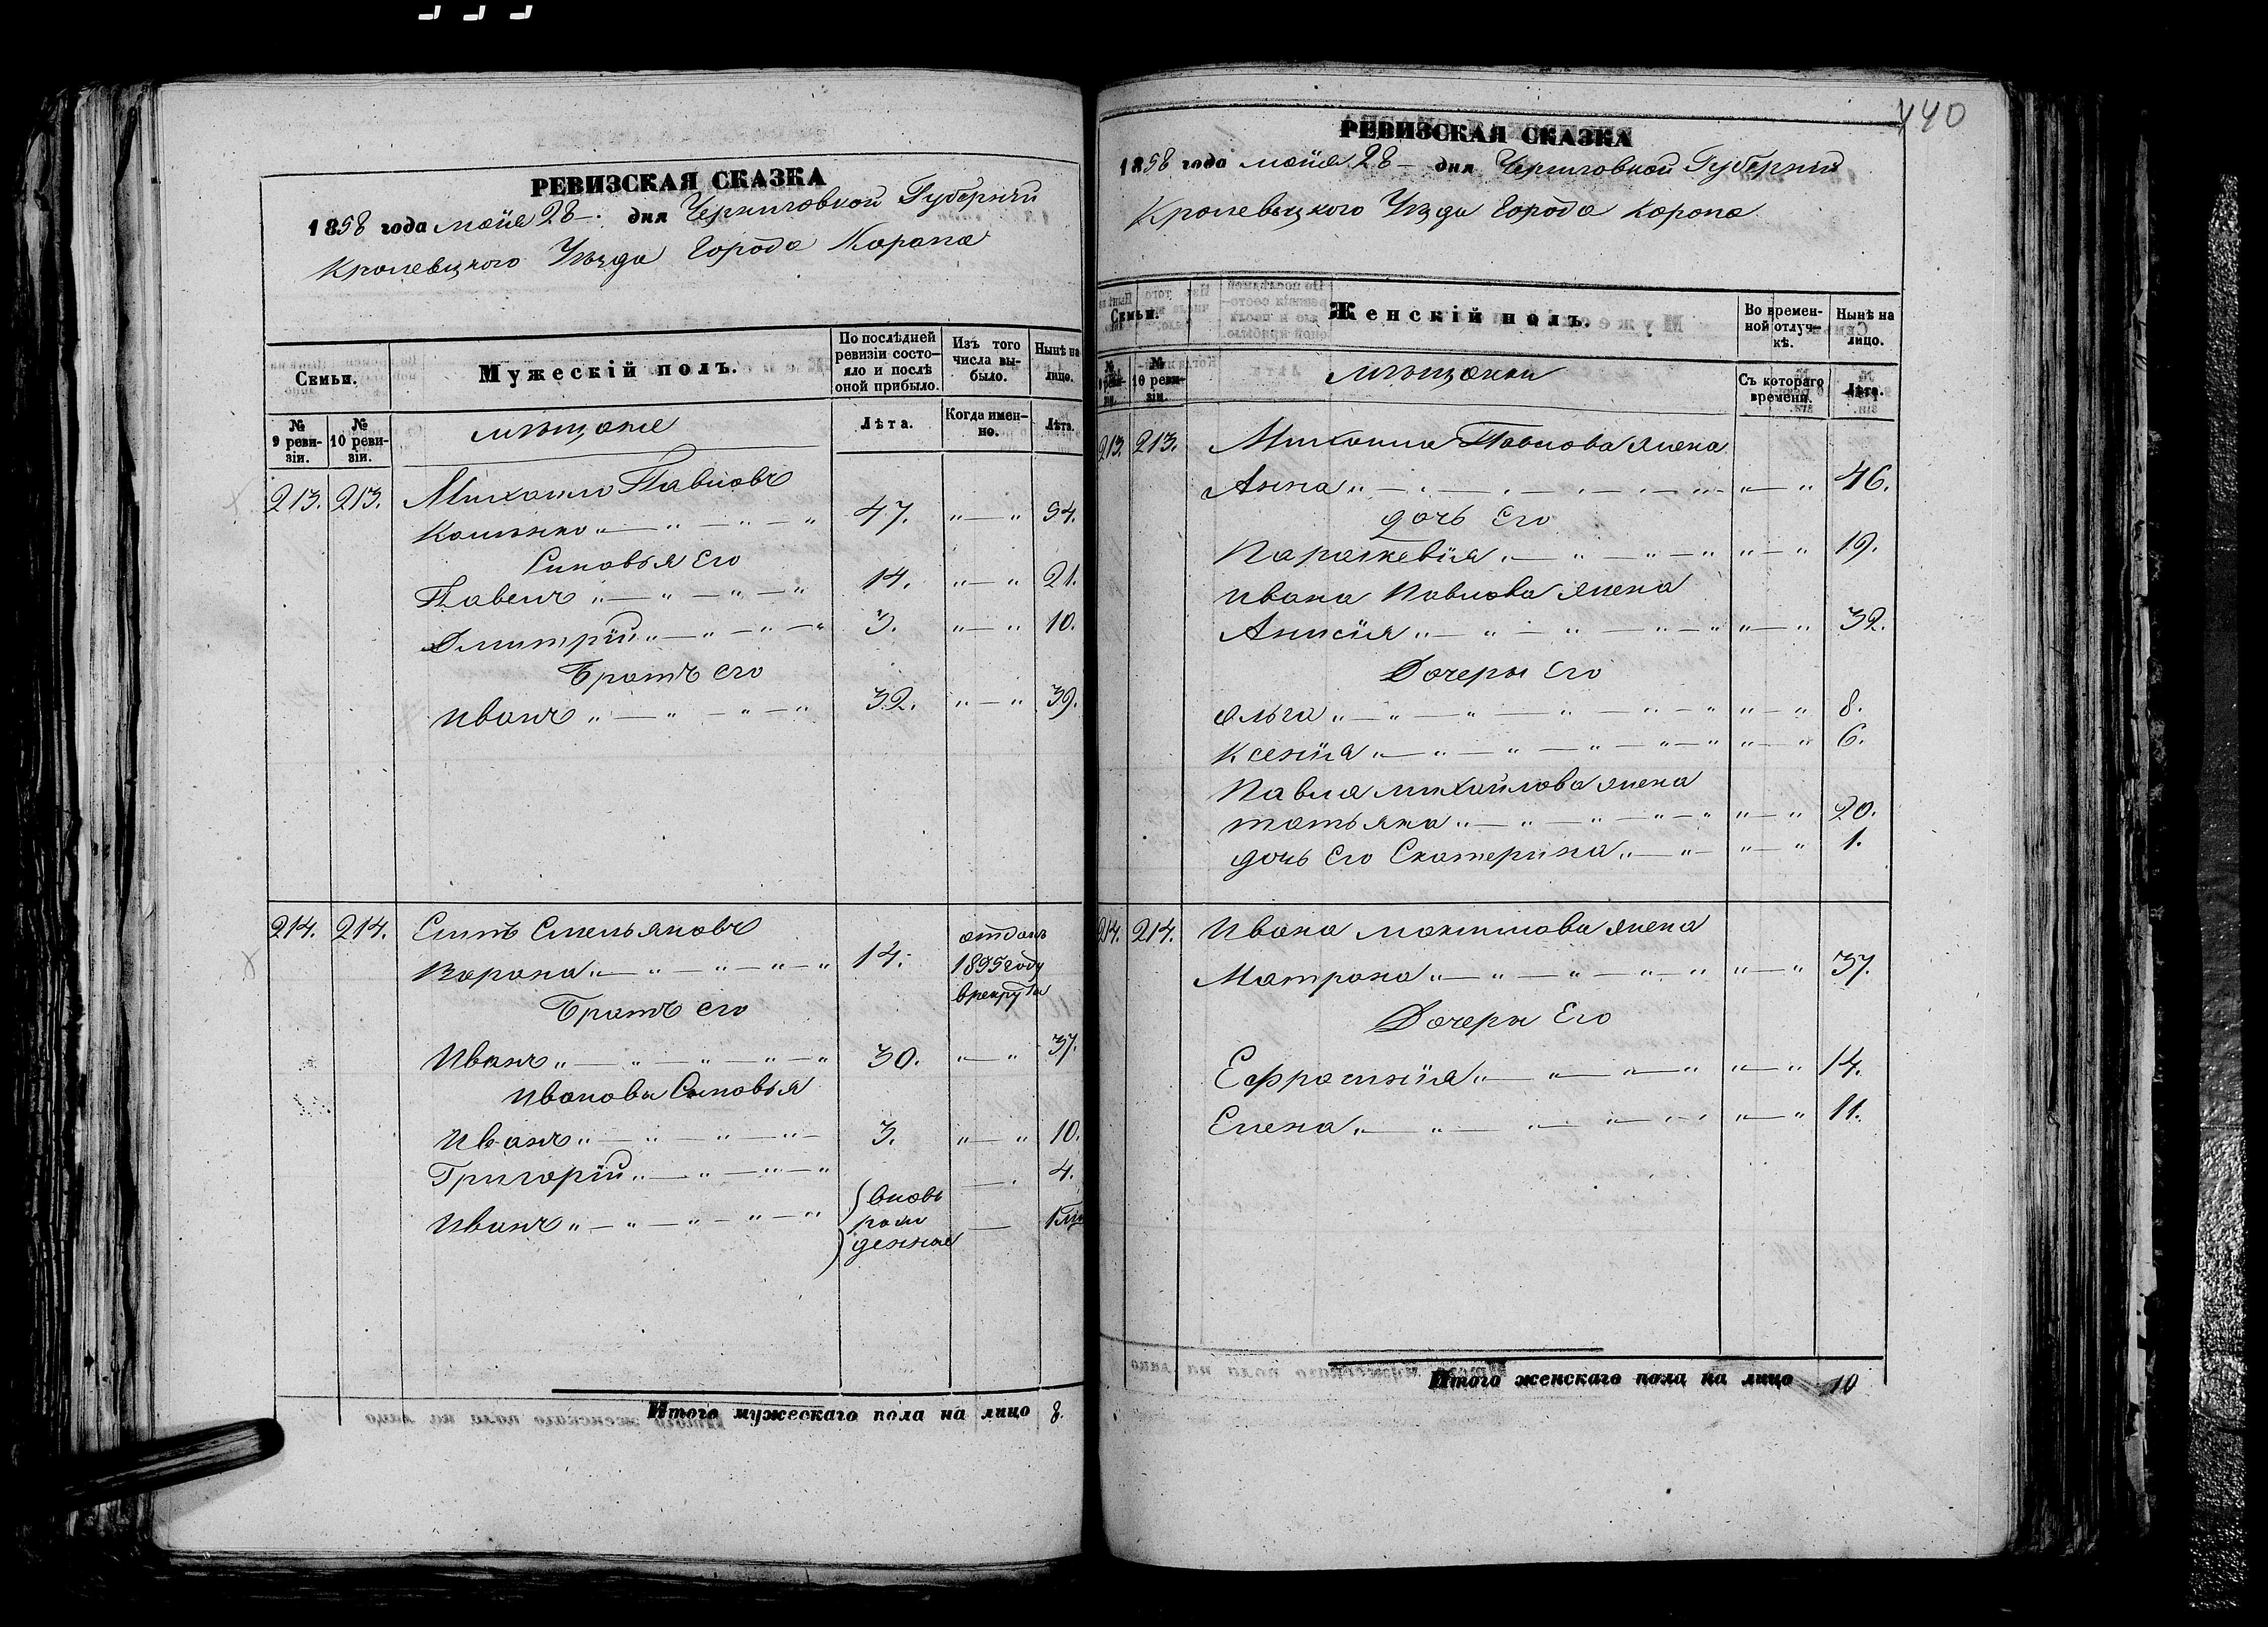 РЕВИЗСКАЯ СКАЗКА
1858 года маїя 28 дня Черниговской Губерніи
Кролевецкого Уѣзда Города Коропа
Семьи.
Мужескій полъ.
По послѣдней ревизіи состояло и послѣ оной прибыло.
Изъ того числа выбыло.
Нынѣ на лицо.
№ 9 ревизіи.
№ 10 ревизіи.
мѣщане
Лѣта.
Когда именно.
Лѣта.
213. 213. Михаило Павловъ
47. 54.
Синовья Его
Павелъ 14. 21.
Дмитрій 3. 10.
Братъ его
Иванъ 32. 39.
214. 214. Емельяновъ отданъ
Ворона 14. 1855 году
в рекруты
Братъ его
Иванъ 30. 37.
Ивановы Сыновья
Иванъ 3. 10.
Григорій 4.
Иванъ вновь рожденные
Итого мужескаго пола на лицо 8.
440
РЕВИЗСКАЯ СКАЗКА
1858 года маїя 28 дня Черниговской Губерніи
Кролевецкого Уѣзда Города Коропа
Семьи.
Женскій полъ.
Во временной отлучкѣ.
Нынѣ на лицо.
№ 9 ревизіи.
№ 10 ревизіи.
мѣщанки
Съ котораго времени.
Лѣта.
213. 213. Михаила Павлова жена
Анна 46.
дочь Его
Параскевія 19.
Ивана Павлова жена
Анисія 32.
Дочеры Его
Ольга 8.
Ксенія 6.
Павла Михайлова жена
Татьяна 20.
дочь Его Екатерина 1.
214. 214. Ивана жена
Матрона 37.
Дочеры Его
Ефросинія 14.
Елена 11.
Итого женскаго пола на лицо 10